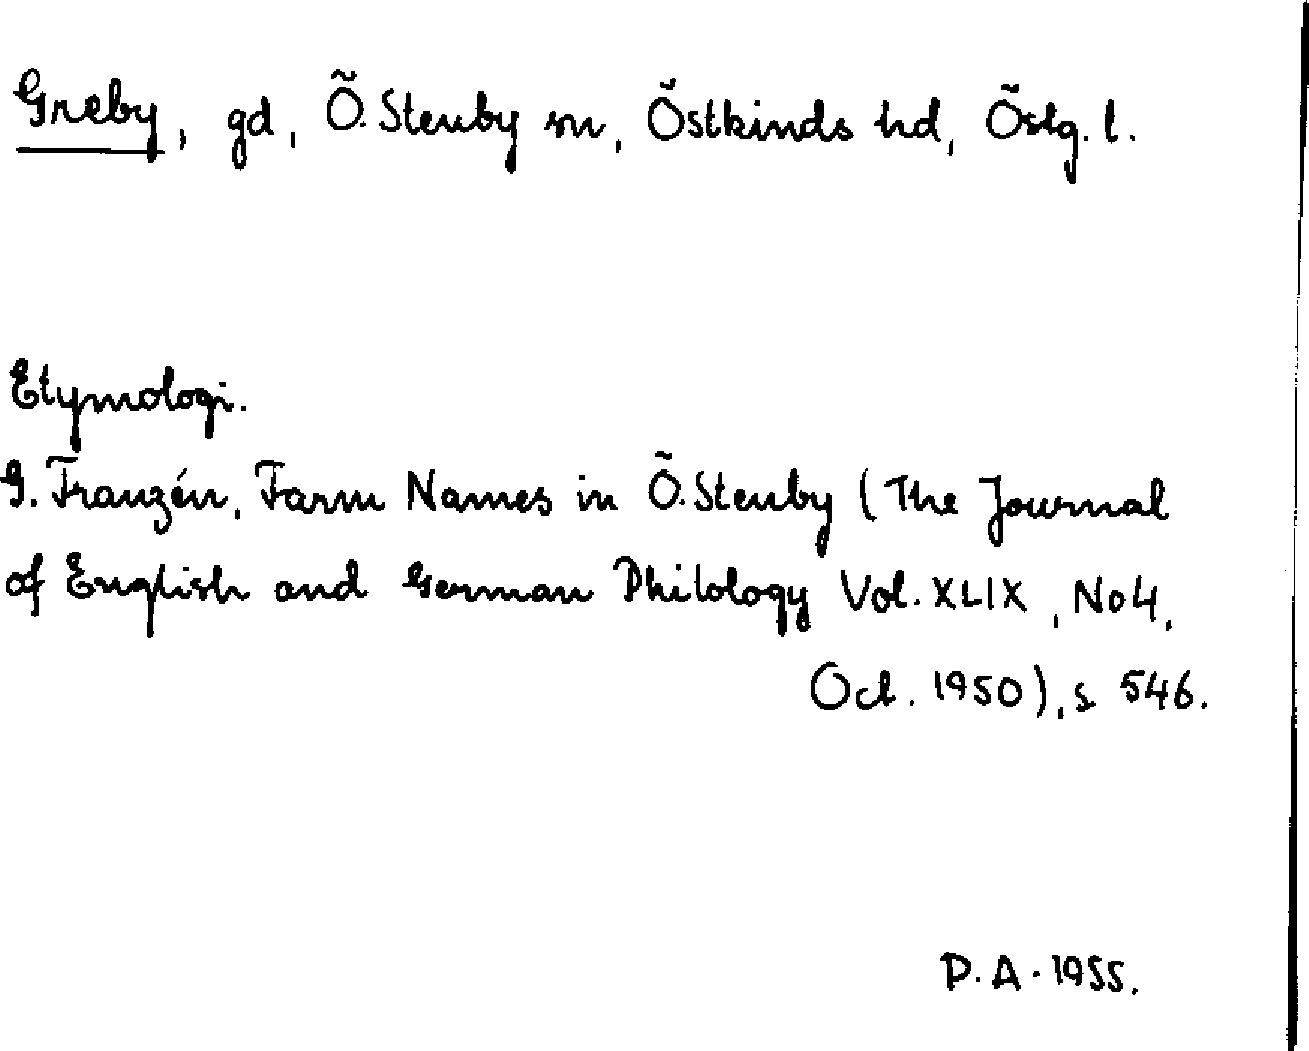 Greby, gd, Ö. Stenby sn, Östkinds hd, Östg. l.
Etymologi.
G. Franzén, Farm Names in Ö. Stenby (The Journal
of English and German Philology Vol. XLIX, No 4,
Oct. 1950), s 546.
P. A. 1955.